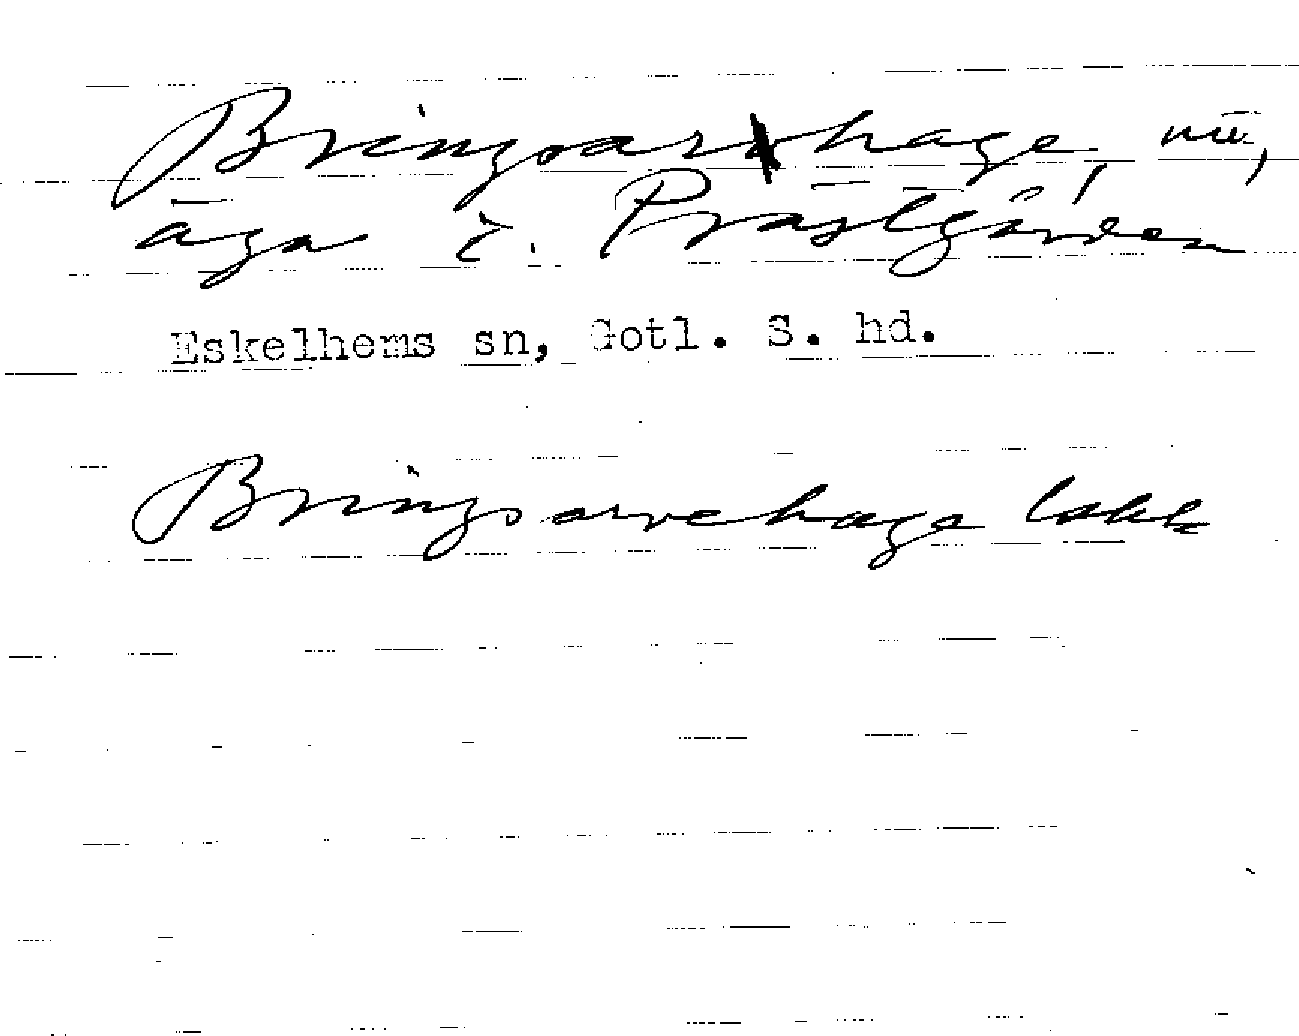 Bringsarhage, nu,
äga i. Prästgården
Eskelhems sn, Gotl. S. hd.
Bringsarvehage